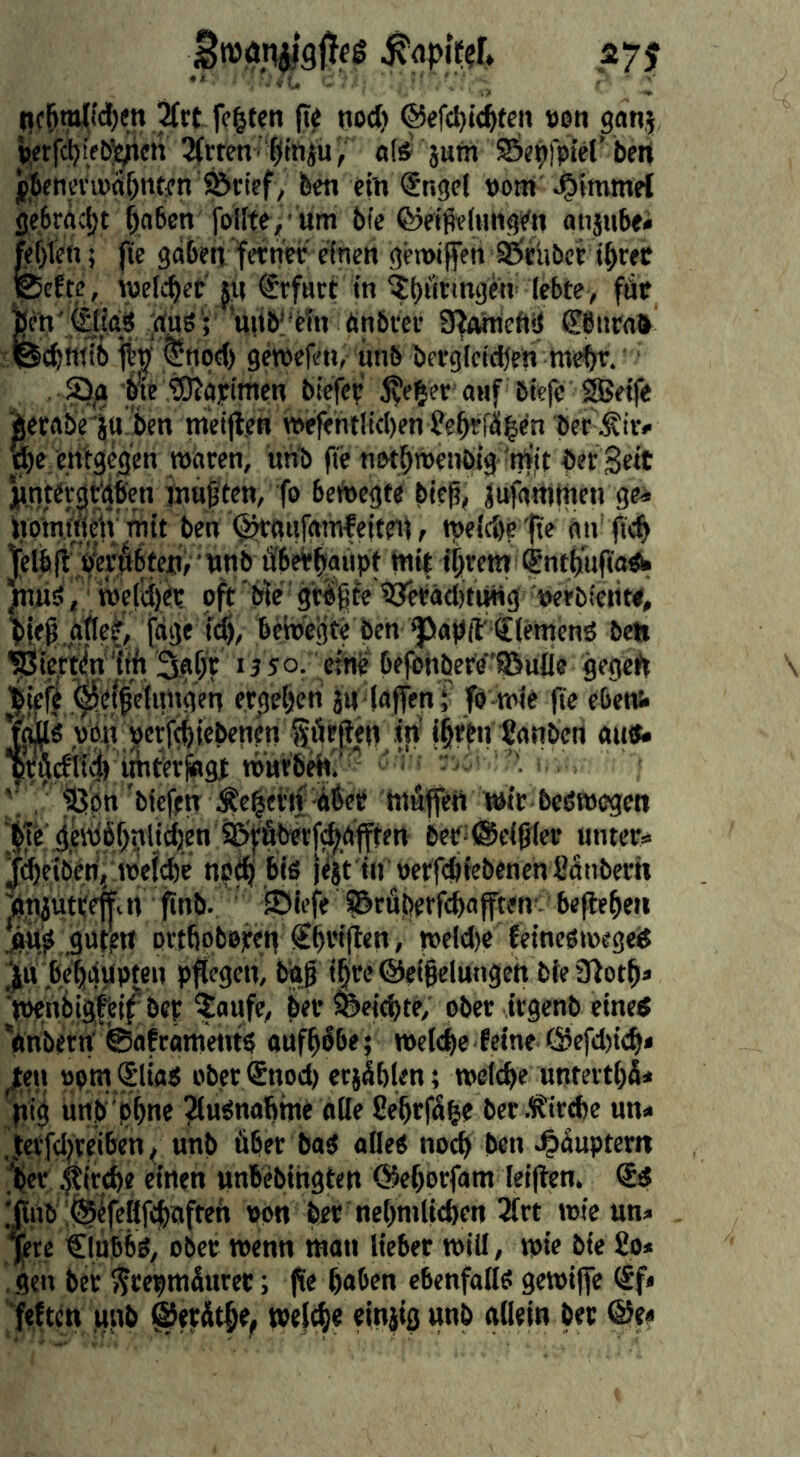 Zwanzigstes Kapitel. 275
nehmlichen Art setzten sie noch Geschichten von ganz
verschiedenen Arten hinzu, als zum Beyspiel den
obenerwähnten Brief, den ein Engel vom Himmel
gebracht haben sollte, um die Geißelungen anzube-
fehlen; sie gaben ferner einen gewissen Bruder ihrer
Sekte, welcher zu Erfurt in Thüringen lebte, für
den Elias aus; und ein andrer Namens Conrad
Schmid sey Enoch gewesen, und dergleichen mehr.
Da die Maximen dieser Ketzer auf diese Weise
gerade zu den meisten wesentlichen Lehrsätzen der Kir-
che entgegen waren, und sie nothwendig mit der Zeit
untergraben mußten, so bewegte dieß, zusammen ge-
nommen mit den Grausamkeiten, welche sie an sich
selbst verübten, und überhaupt mit ihrem Enthusias-
mus, welcher oft die größte Verachtung verdiente,
dieß alles, sage ich, bewegte den Papst Clemens den
Vierten im Jahr 1350. eine besondere Bulle gegen
diese Geißelungen ergehen zu lassen; so wie sie eben-
falls von verschiedenen Fürsten in ihren Landen aus-
drücklich untersagt wurden.
Von diesen Ketzern aber müssen wir deswegen
die gewöhnlichen Brüderschafften der Geißler unter-
scheiden, welche noch bis jezt in verschiedenen Ländern
anzutreffen sind. Diese Brüderschafften bestehen
aus guten orthodoxen Christen, welche keinesweges
zu behaupten pflegen, daß ihre Geißelungen die Noth-
wendigkeit der Taufe, der Beichte, oder irgend eines
andern Sakraments aufhöbe; welche keine Geschich-
ten vom Elias oder Enoch erzählen; welche unterthä-
nig und ohne Ausnahme alle Lehrsätze der Kirche un-
terschreiben, und über das alles noch den Häuptern
der Kirche einen unbedingten Gehorsam leisten. Es
sind Gesellschaften von der nehmlichen Art wie un-
sere Clubbs, oder wenn man lieber will, wie die Lo-
gen der Freymäurer; sie haben ebenfalls gewisse Ef-
fekten und Geräthe, welche einzig und allein der Ge-